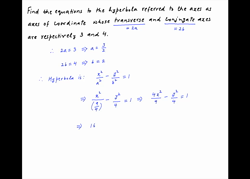 Find the equations to the hyperbola referred to the axes as
axes of coordinate whose transverse and conjugate axes
= 2a = 2b
are respectively 3 and 4.
∴ 2a = 3 ⇒ a = 3/2
2b = 4 ⇒ b = 2
∴ Hyperbola is: x²/a² - y²/b² = 1
⇒ x²/(9/4) - y²/4 = 1 ⇒ 4x²/9 - y²/4 = 1
⇒ 16